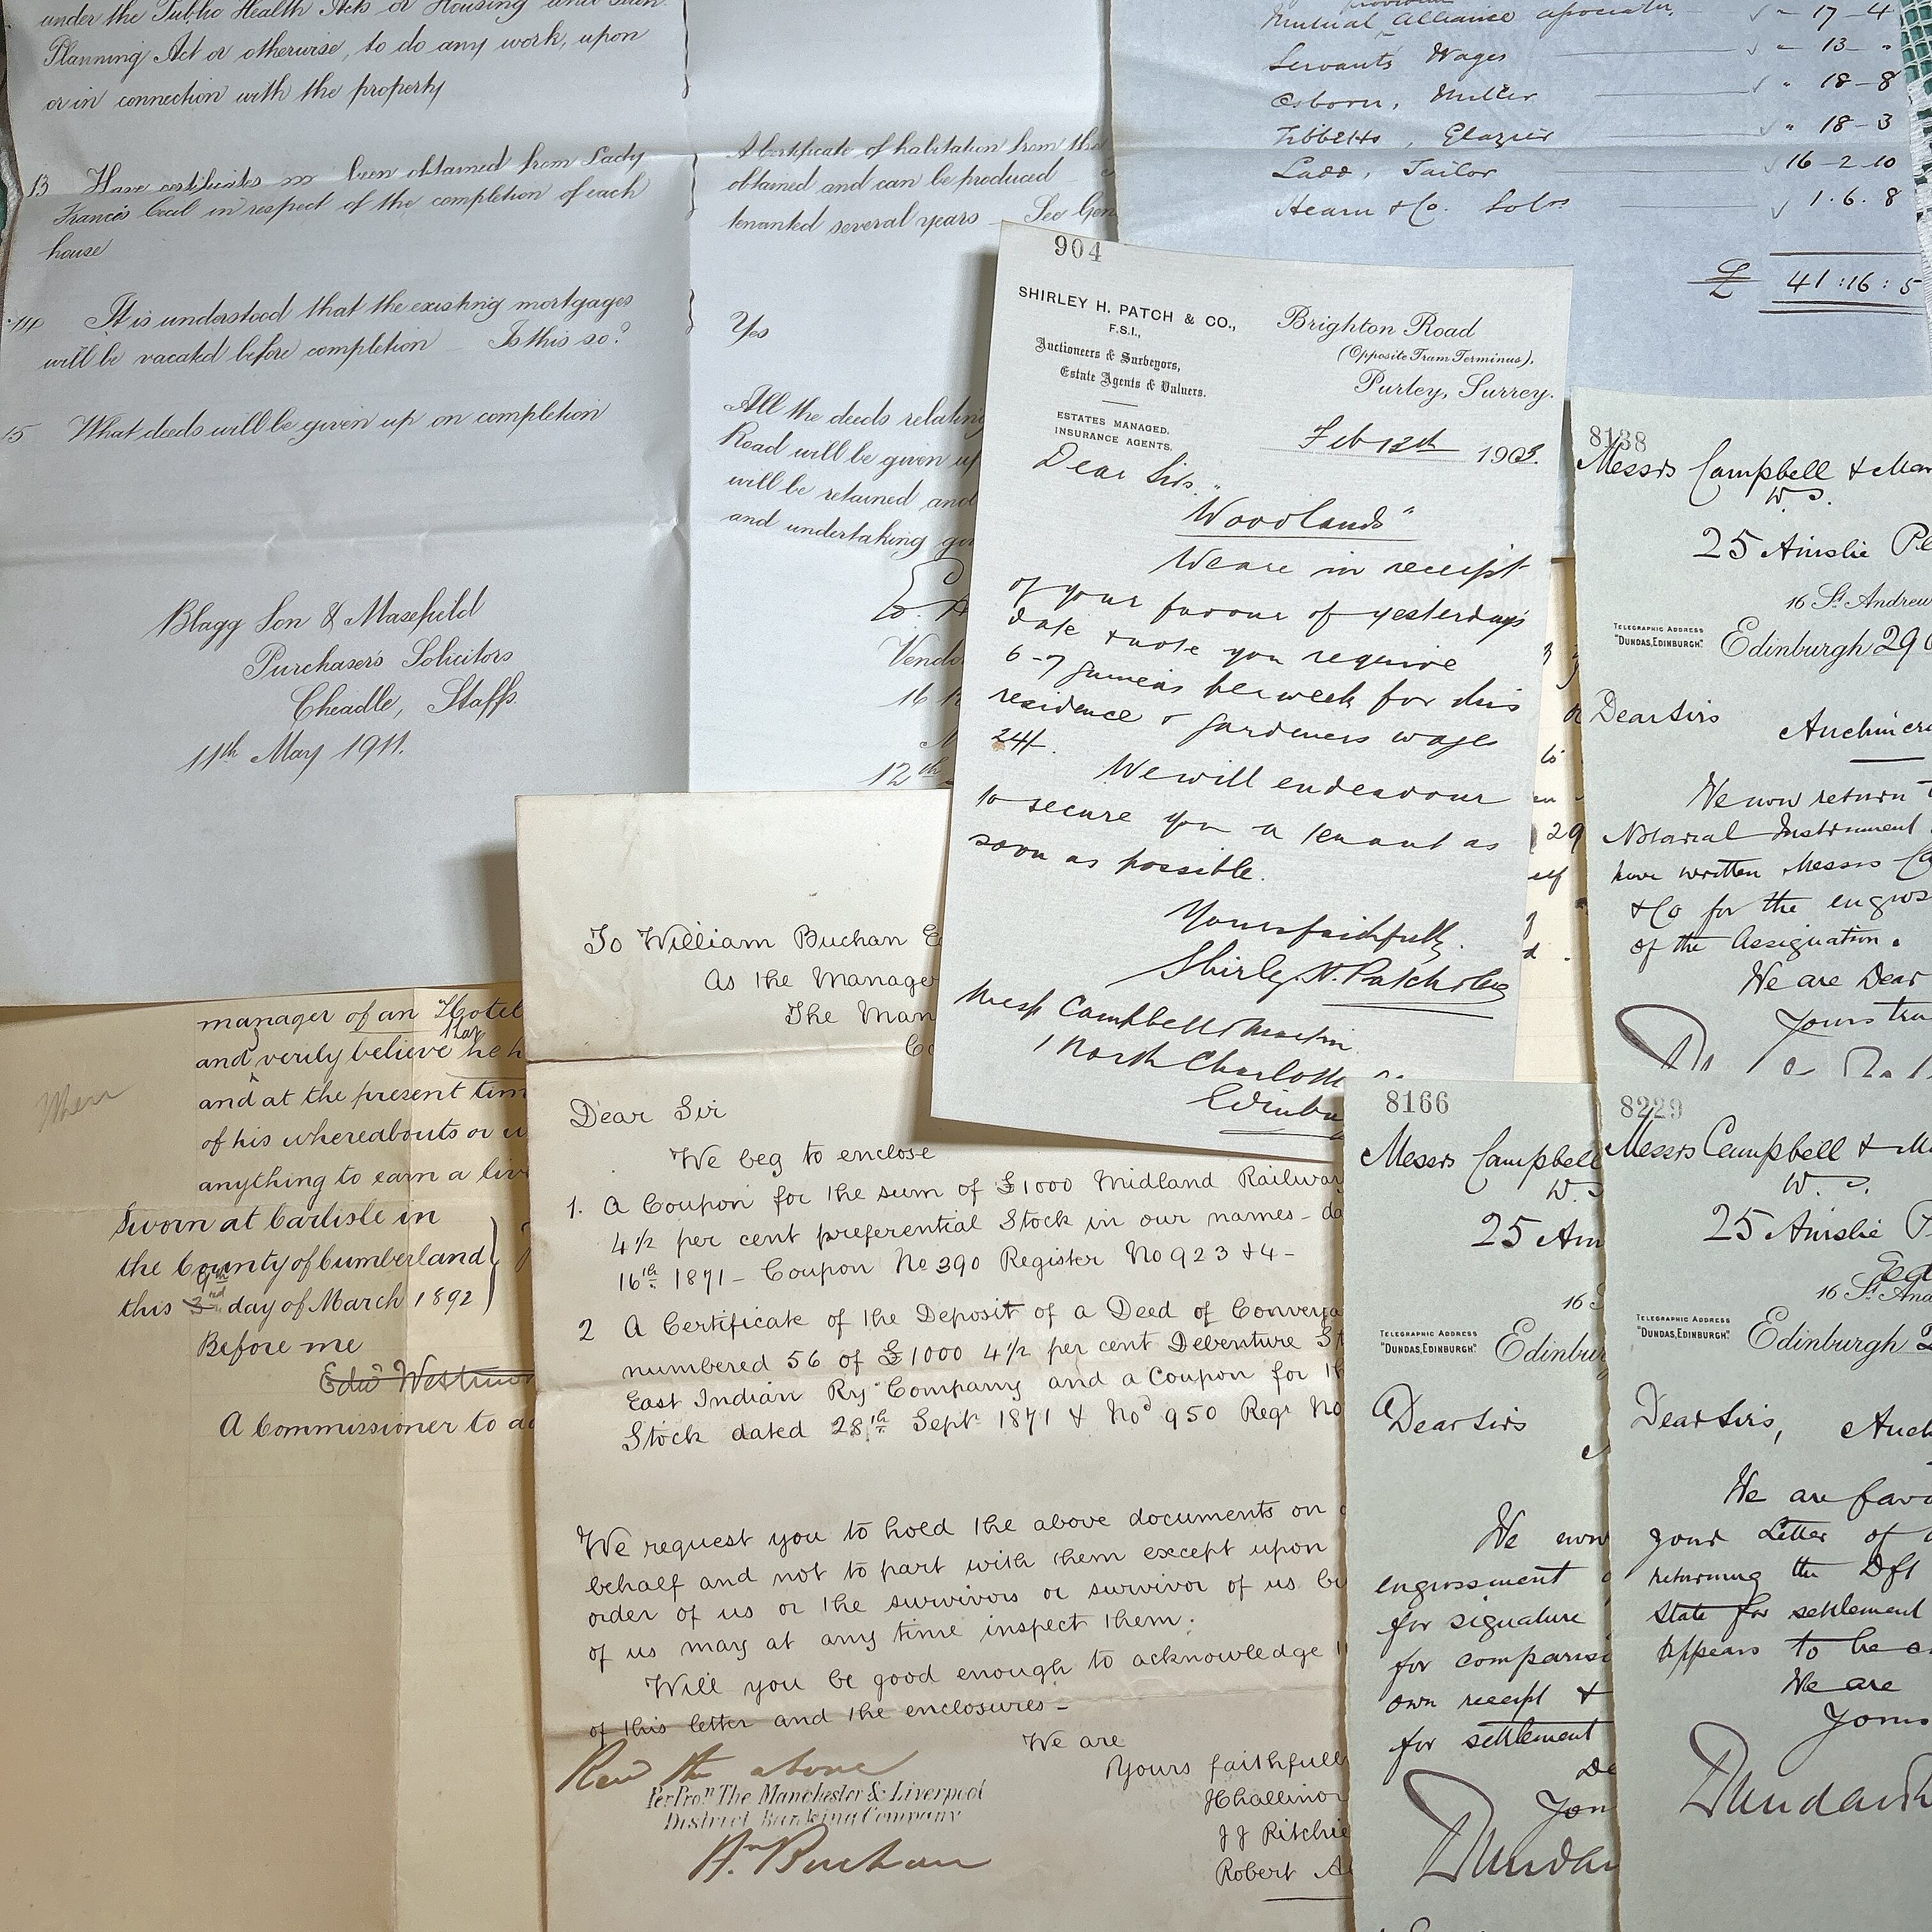 under the Public Health Acts or Housing and Town
Planning Act or otherwise, to do any work, upon
or in connection with the property
13 Have certificates been obtained from Lady
Francis Cecil in respect of the completion of each
house
14 It is understood that the existing mortgages
will be vacated before completion Is this so?
15 What deeds will be given up on completion
Blagg Son & Masefield
Purchaser's Solicitors
Cheadle, Staffs.
11th May 1911.
A certificate of habitation from the
obtained and can be produced
tenanted several years — See Gen
Yes
All the deeds relating
Road will be given up
will be retained and
and undertaking
Vendo
16
12th
Mutual Alliance 17-4
Servants Wages 13 -
Osborn, Miller 18-8
Tibbetts, Glazier 18-3
Ladd, Tailor 16-2-10
Hearn & Co. Solrs 1.6.8
£ 41:16:5
904
SHIRLEY H. PATCH & CO.,
F.S.I.,
Auctioneers & Surveyors,
Estate Agents & Valuers.
ESTATES MANAGED.
INSURANCE AGENTS.
Brighton Road
(Opposite Tram Terminus).
Purley, Surrey.
Feb 12th 1903.
Dear Sirs.
"Woodlands"
We are in receipt
of your favour of yesterday's
date & note you require
6-7 guineas per week for this
residence & gardeners wages
24/-.
We will endeavour
to secure you a tenant as
soon as possible.
Yours faithfully.
Shirley H. Patch & Co
Messrs Campbell & Martin
1 North Charlotte
Edinbu
8138
Messrs Campbell & Mar
W.S.
25 Ainslie Pl
16 St. Andrew
TELEGRAPHIC ADDRESS
"DUNDAS, EDINBURGH."
Edinburgh 29
Dear Sirs
We now return
Notarial Instrument
have written Messrs
& Co for the engros
of the Assignation.
We are Dear
Yours tru
manager of an Hotel
and verily believe he h
and at the present tim
of his whereabouts or
anything to earn a liv
Sworn at Carlisle in
the County of Cumberland
this 9th day of March 1892
Before me
A Commissioner to ad
When
To William Buchan E
As the Manage
The Man
Co
Dear Sir
We beg to enclose
1. A Coupon for the sum of £1000 Midland Railway
4½ per cent preferential Stock in our names - da
16th 1871 - Coupon No 390 Register No 923 & 4 -
2 A Certificate of the Deposit of a Deed of Conveya
numbered 56 of £1000 4½ per cent Debenture St
East Indian Ry Company and a Coupon for th
Stock dated 28th Septr 1871 & Nod 950 Regr No
We request you to hold the above documents on
behalf and not to part with them except upon
order of us or the survivors or survivor of us bu
of us may at any time inspect them:
Will you be good enough to acknowledge
of this letter and the enclosures -
We are
Yours faithfull
J Challinor
J J Ritchie
Robert
Recd the above
Per Pron The Manchester & Liverpool
District Banking Company
Wm Buchan
8166
Messrs Campbell
W.S
25 Ain
16 S
TELEGRAPHIC ADDRESS
"DUNDAS, EDINBURGH."
Edinbur
Dear Sirs
We now
engrossment
for signature
for comparis
own receipt &
for settlement
De
You
Dundas
8229
Messrs Campbell & M
W.S.
25 Ainslie P
16 St. And
TELEGRAPHIC ADDRESS
"DUNDAS, EDINBURGH."
Edinburgh 2
Dear Sirs, Auch
We are favo
your Letter of
returning the Dft
State for settlement
appears to be
We are
Yours
Dundas